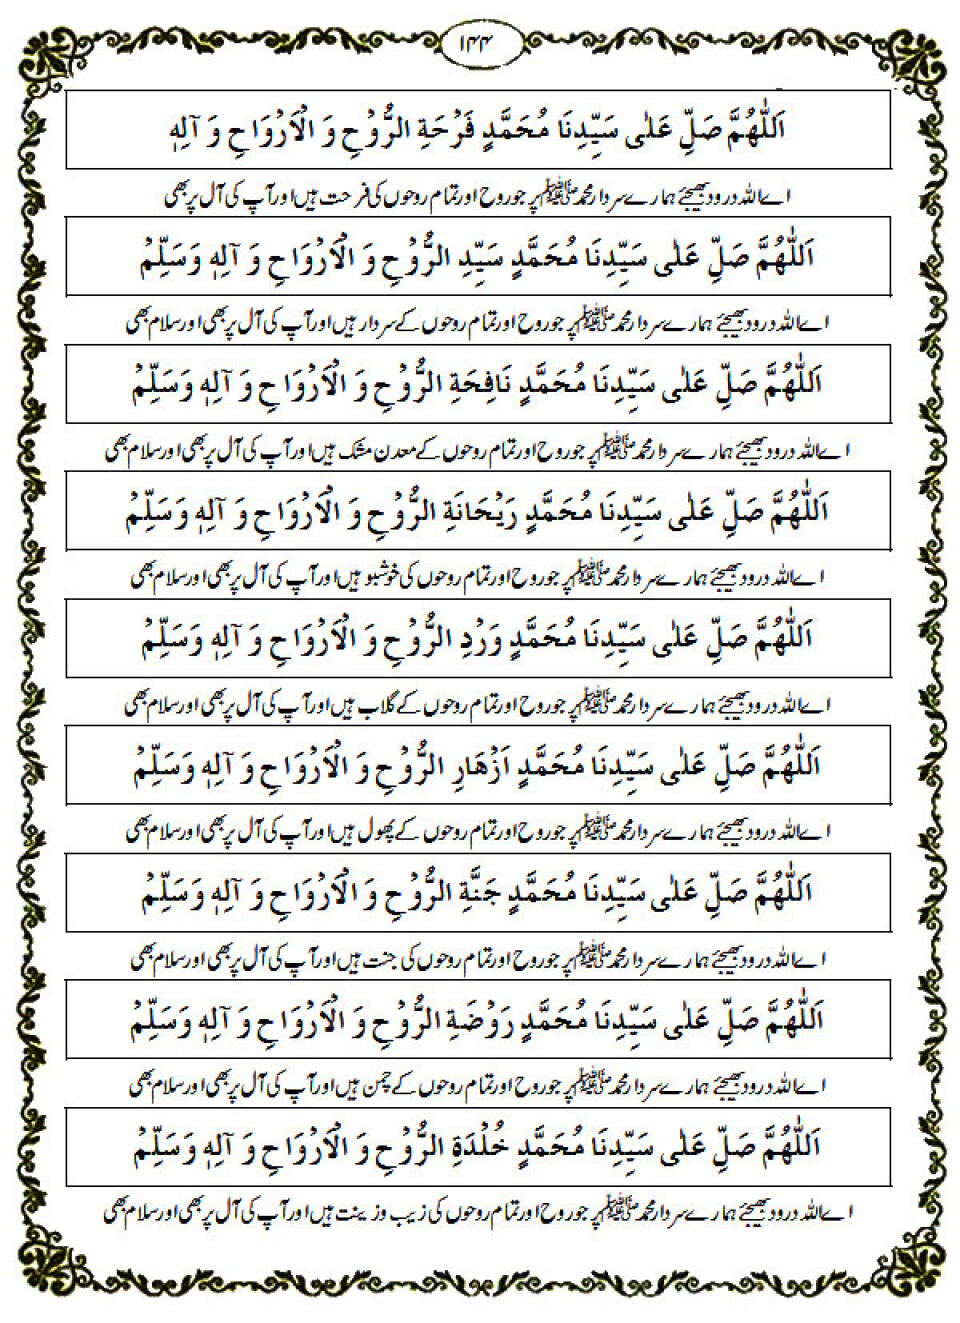 ۱۴۴
اَللّٰهُمَّ صَلِّ عَلٰى سَيِّدِنَا مُحَمَّدٍ فَرْحَةِ الرُّوْحِ وَ الْاَرْوَاحِ وَ آلِهٖ
اے اللہ درود بھیجئے ہمارے سردار محمد ﷺ پر جو روح اور تمام روحوں کی فرحت ہیں اور آپ کی آل پر بھی
اَللّٰهُمَّ صَلِّ عَلٰى سَيِّدِنَا مُحَمَّدٍ سَيِّدِ الرُّوْحِ وَ الْاَرْوَاحِ وَ آلِهٖ وَسَلِّمْ
اے اللہ درود بھیجئے ہمارے سردار محمد ﷺ پر جو روح اور تمام روحوں کے سردار ہیں اور آپ کی آل پر بھی اور سلام بھی
اَللّٰهُمَّ صَلِّ عَلٰى سَيِّدِنَا مُحَمَّدٍ نَافِحَةِ الرُّوْحِ وَ الْاَرْوَاحِ وَ آلِهٖ وَسَلِّمْ
اے اللہ درود بھیجئے ہمارے سردار محمد ﷺ پر جو روح اور تمام روحوں کے معدن مشک ہیں اور آپ کی آل پر بھی اور سلام بھی
اَللّٰهُمَّ صَلِّ عَلٰى سَيِّدِنَا مُحَمَّدٍ رَيْحَانَةِ الرُّوْحِ وَ الْاَرْوَاحِ وَ آلِهٖ وَسَلِّمْ
اے اللہ درود بھیجئے ہمارے سردار محمد ﷺ پر جو روح اور تمام روحوں کی خوشبو ہیں اور آپ کی آل پر بھی اور سلام بھی
اَللّٰهُمَّ صَلِّ عَلٰى سَيِّدِنَا مُحَمَّدٍ وَرْدِ الرُّوْحِ وَ الْاَرْوَاحِ وَ آلِهٖ وَسَلِّمْ
اے اللہ درود بھیجئے ہمارے سردار محمد ﷺ پر جو روح اور تمام روحوں کے گلاب ہیں اور آپ کی آل پر بھی اور سلام بھی
اَللّٰهُمَّ صَلِّ عَلٰى سَيِّدِنَا مُحَمَّدٍ اَزْهَارِ الرُّوْحِ وَ الْاَرْوَاحِ وَ آلِهٖ وَسَلِّمْ
اے اللہ درود بھیجئے ہمارے سردار محمد ﷺ پر جو روح اور تمام روحوں کے پھول ہیں اور آپ کی آل پر بھی اور سلام بھی
اَللّٰهُمَّ صَلِّ عَلٰى سَيِّدِنَا مُحَمَّدٍ جَنَّةِ الرُّوْحِ وَ الْاَرْوَاحِ وَ آلِهٖ وَسَلِّمْ
اے اللہ درود بھیجئے ہمارے سردار محمد ﷺ پر جو روح اور تمام روحوں کی جنت ہیں اور آپ کی آل پر بھی اور سلام بھی
اَللّٰهُمَّ صَلِّ عَلٰى سَيِّدِنَا مُحَمَّدٍ رَوْضَةِ الرُّوْحِ وَ الْاَرْوَاحِ وَ آلِهٖ وَسَلِّمْ
اے اللہ درود بھیجئے ہمارے سردار محمد ﷺ پر جو روح اور تمام روحوں کے چمن ہیں اور آپ کی آل پر بھی اور سلام بھی
اَللّٰهُمَّ صَلِّ عَلٰى سَيِّدِنَا مُحَمَّدٍ خُلْدَةِ الرُّوْحِ وَ الْاَرْوَاحِ وَ آلِهٖ وَسَلِّمْ
اے اللہ درود بھیجئے ہمارے سردار محمد ﷺ پر جو روح اور تمام روحوں کی زیب و زینت ہیں اور آپ کی آل پر بھی اور سلام بھی